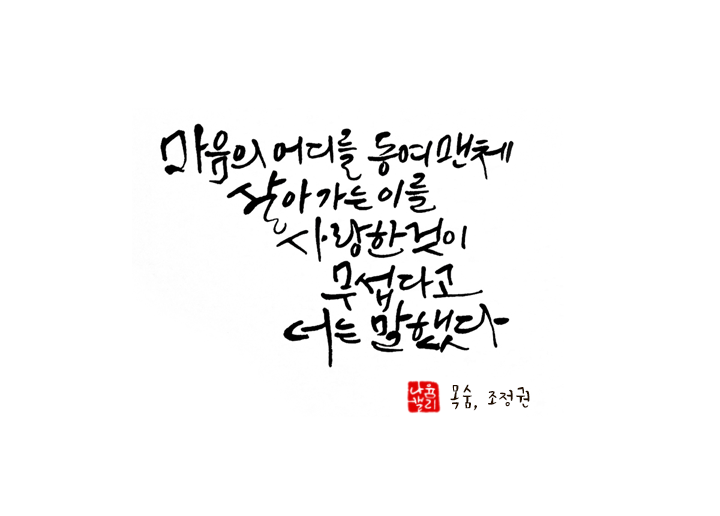 마음의 어디를 동여맨체
살아가는 이를
사랑한것이
무섭다고
너는 말했다
목숨, 조정권